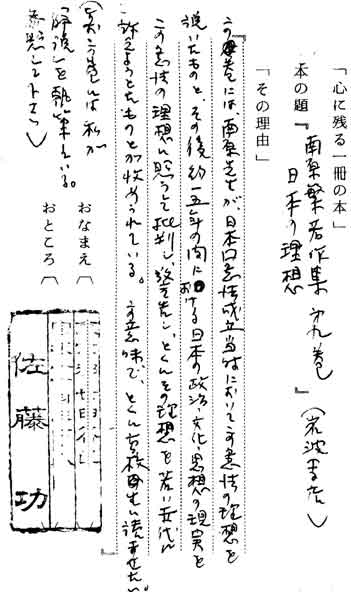 「心に残る一冊の本」
本の題『南原繁著作集 第九巻
日本の理想』(岩波書店)
「その理由」
『この巻には、南原先生が、日本国憲法成立当時においてこの憲法の理想を
説いたものと、その後約一五年の間における日本の政治・文化・思想の現実を
この憲法の理想に照らして批判し、警告し、とくにその理想を若い世代に
訴えようとしたものとが収められている。その意味で、とくに高校生に読ませたい。』
(なおこの巻には私が
「解説」を執筆している。
参照して下さい)
おなまえ(
おところ(
佐藤功